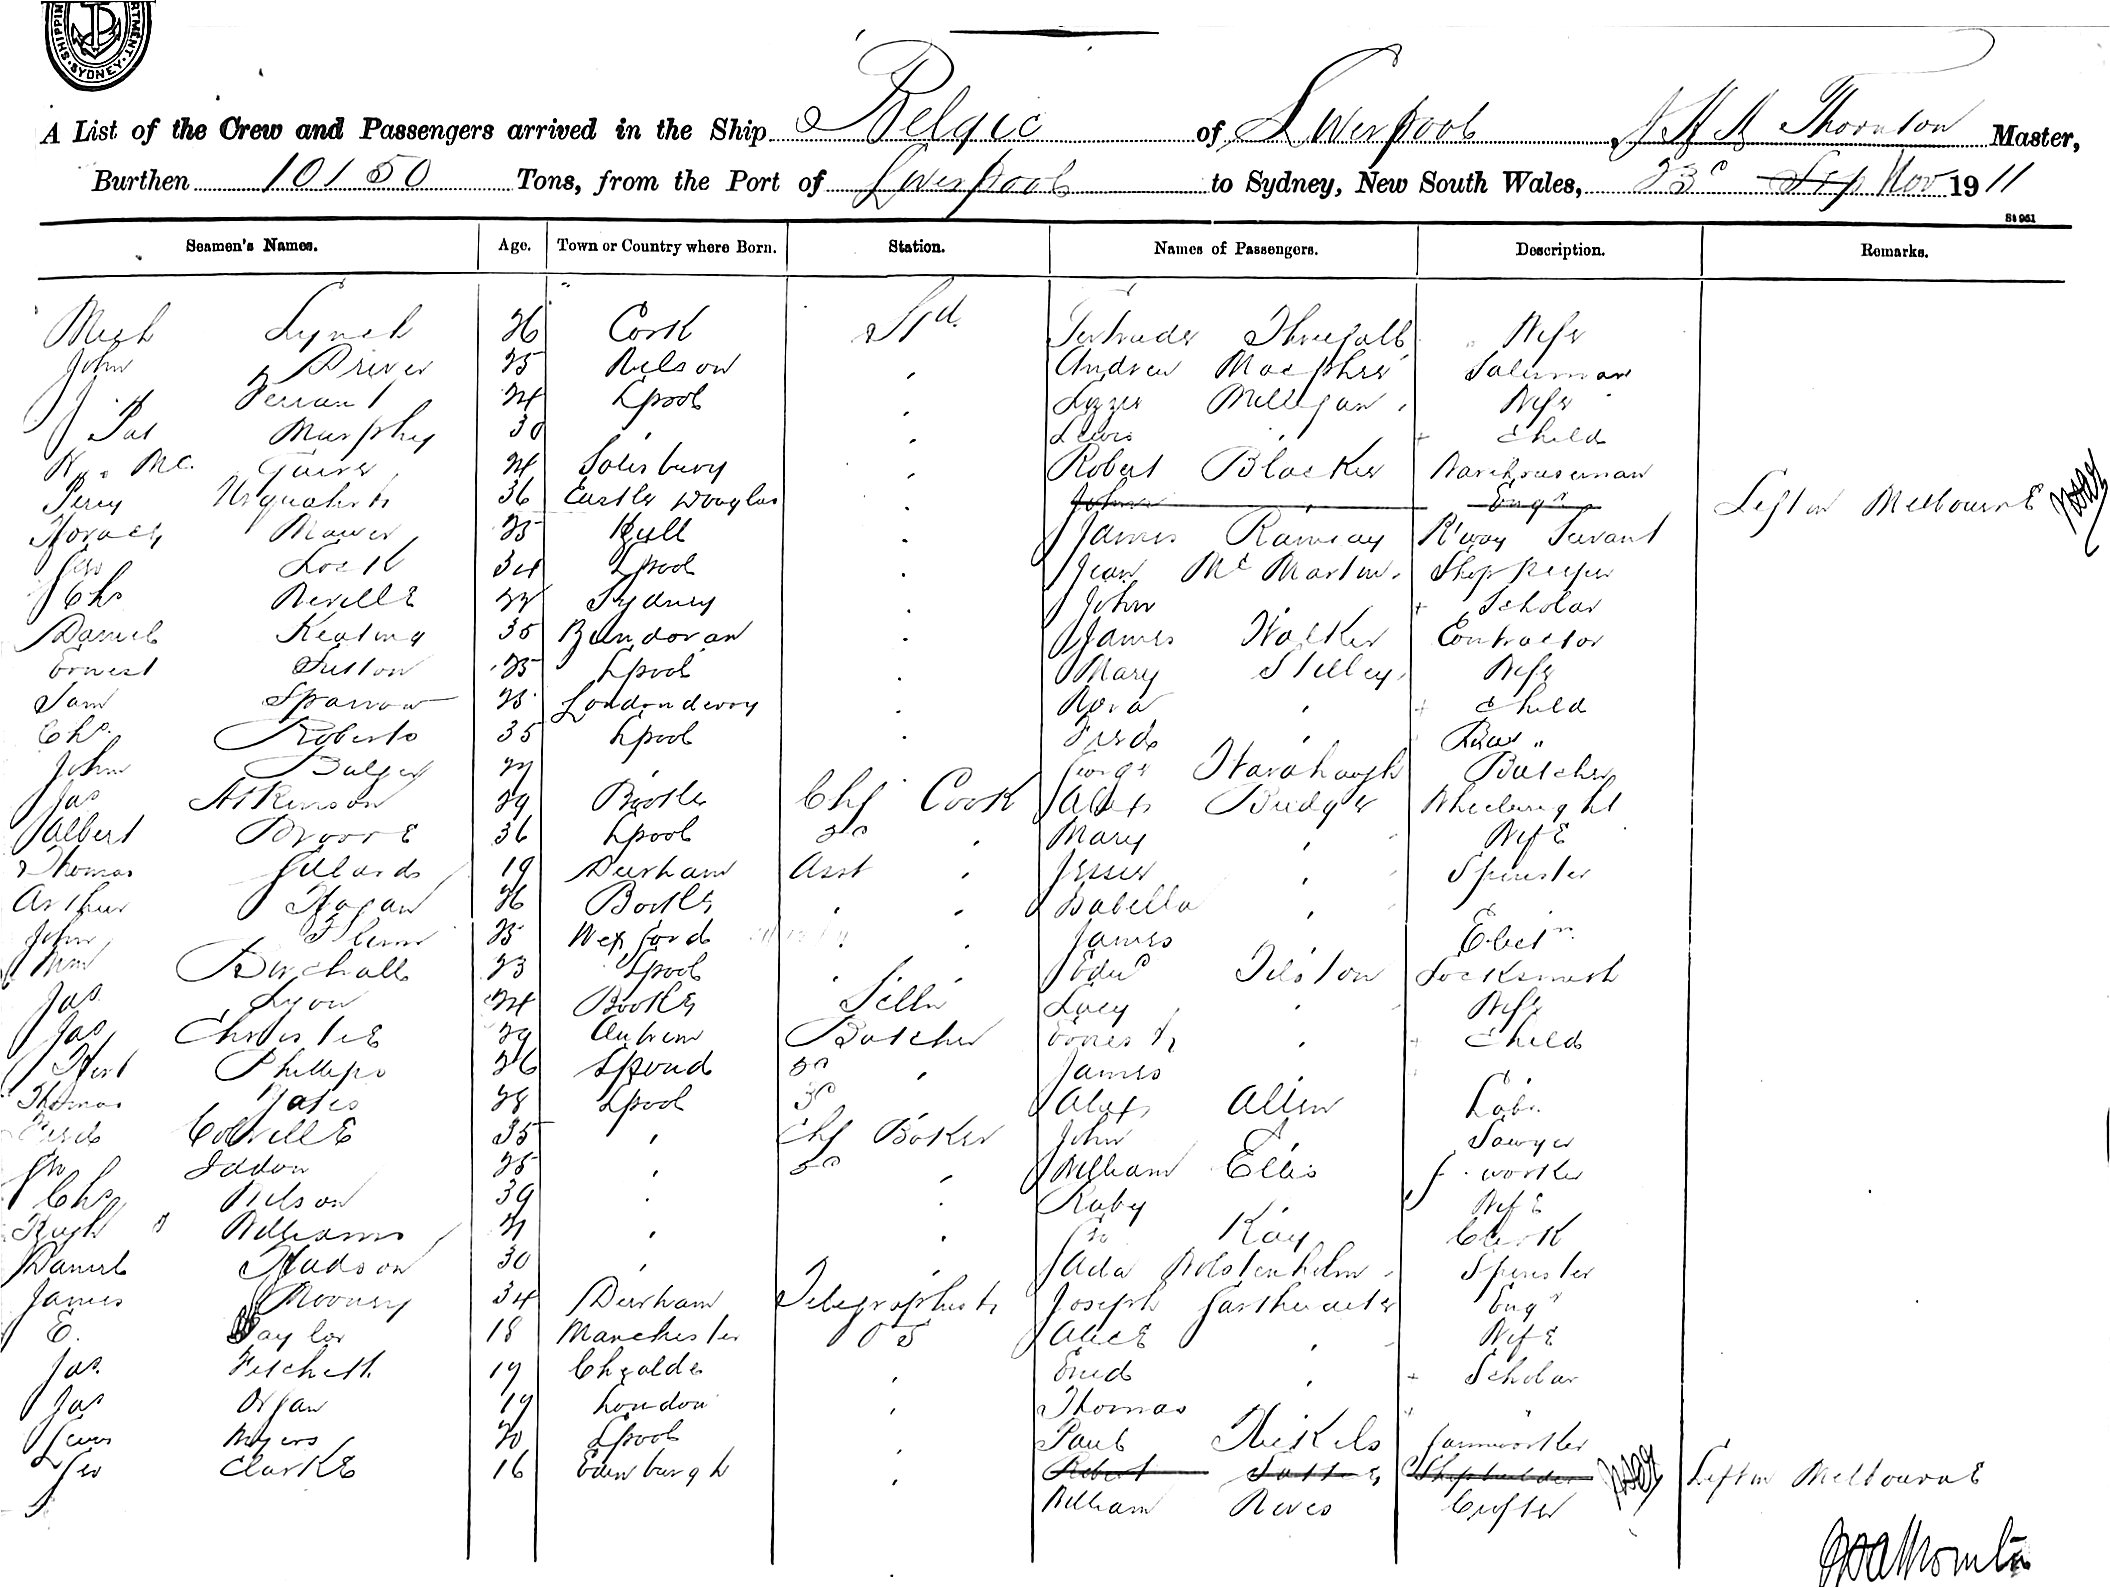 SHIPPIN RTMENT SYDNEY
A List of the Crew and Passengers arrived in the Ship Belgic of Liverpool, J H A Thornton Master,
Burthen 10150 Tons, from the Port of Liverpool to Sydney, New South Wales, 23rd Sep Nov 1911
St 961
Seamen's Names. Age. Town or Country where Born. Station. Names of Passengers. Description. Remarks.
Mich Lynch 26 Cork Std. Gertrude Threlfall Wife
John Driver 25 Nelson " Andrew Macphee Salesman
J. Ferrant 24 Lpool " Lizzie Milligan Wife
Pat Murphy 30 " " Lewis " + Child
Mc Guire 24 Salisbury " Robert Blacker Warehouseman
Percy Urquahrt 36 Castle Douglas " John Engr Left in Melbourne
Horace Mawer 25 Hull " James Ramsay R'way Servant
Geo Lock 34 Lpool " Jean Mc Martin Shop Keeper
Chs Neville 22 Sydney " John " + Scholar
Daniel Keating 35 Bundoran " James Walker Contractor
Ernest Sutton 25 Lpool " Mary Stilley Wife
Sam Sparrow 25 Londonderry " Nora " + Child
Chs. Roberts 35 Lpool " Fredk "
John Bulger 27 " " George Butcher
Jas Atkinson 29 Bootle Chf Cook Alex Budge Wheelwright
Albert Broore 36 Lpool 2nd " Mary " Wife
Thomas Gillards 19 Durham Asst " Jessie " Spinster
Arthur Hogan 26 Bootle " " Isabella " "
John Flinn 25 Wexford " " James " Electn.
Wm Birchall 23 Lpool " " Edwd Tilston Locksmith
Jas. Lyon 24 Bootle Sclln Lucy " Wife
Jas Christie 29 Butcher Ernest " + Child
Herbt Phillips 26 2nd " James " "
Thomas Yates 28 Lpool 3rd Alex Allen Labr.
Fredk Colville 35 " Chf Baker John " Sawyer
Iddon 25 " 2nd " William Ellis f. worker
Chs Nelson 39 " " Ruby " Wife
Hugh Williams 21 " " Kay Clerk
Daniel Hudson 30 " " Ada Wolstenholm Spinster
James Mooney 34 Durham Telegraphist Joseph Garthwaite Engr
E. Taylor 18 Manchester O S Alice " Wife
Jas. Fitchett 19 Cheadle " Enid " + Scholar
Jas Organ 19 London " Thomas " + "
Lewis Myers 20 Lpool " Paul Nickels farmworker
Geo Clarke 16 Edinburgh " Robert Shipbuilder Left in Melbourne
William Neves Crofter